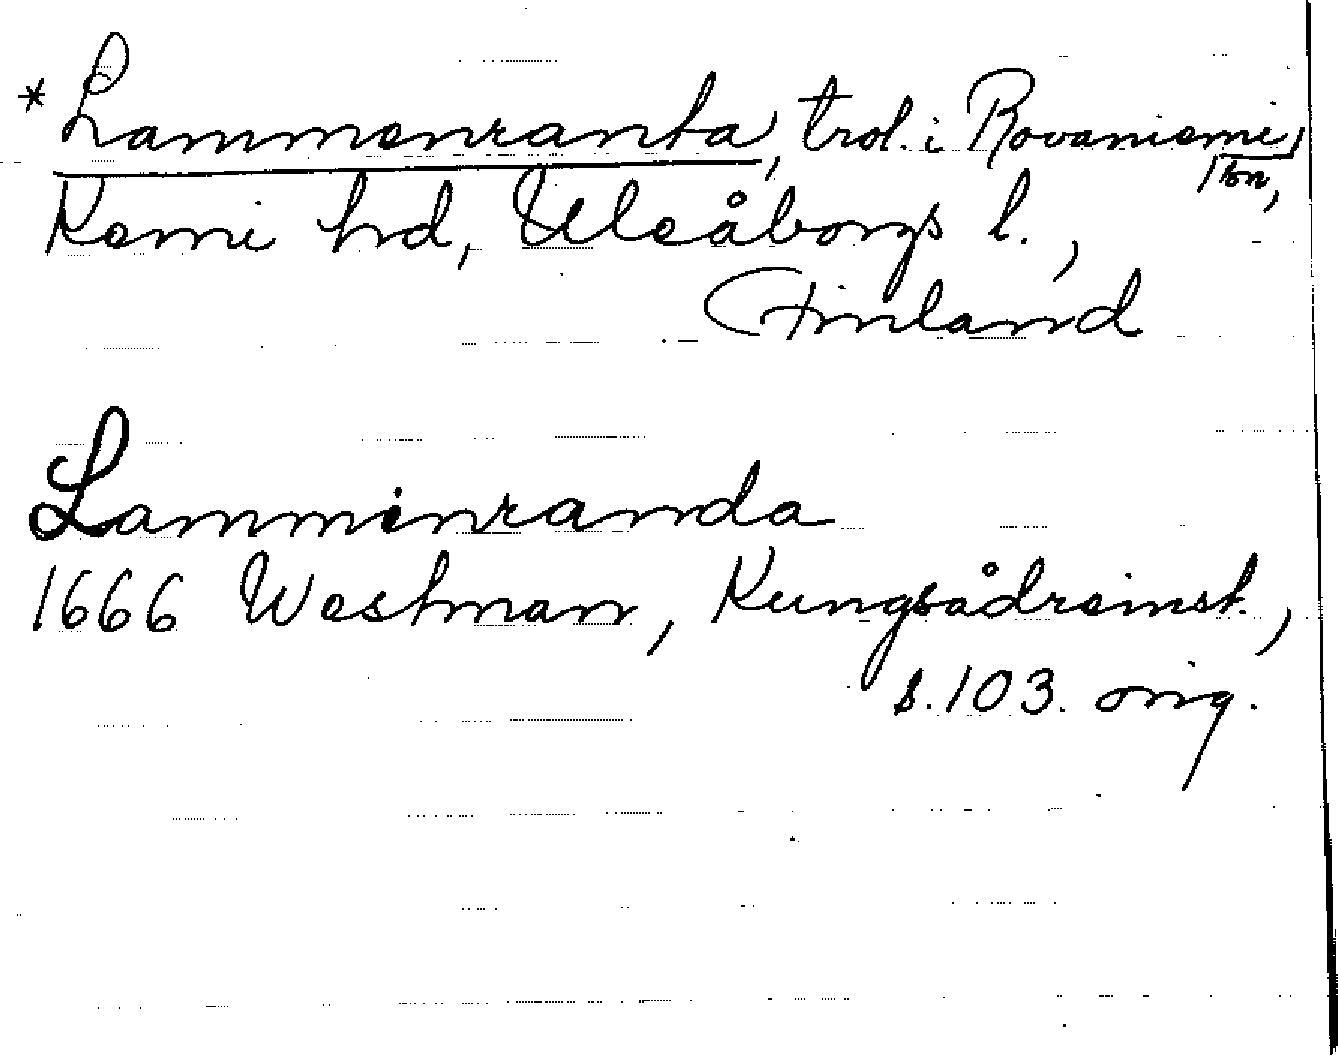 * Lammenranta, trol. i Rovaniemi
tn,
Kemi hd, Uleåborgs l.,
Finland
Lamminranda
1666 Westman, Kungsådreinst.,
s. 103. orig.